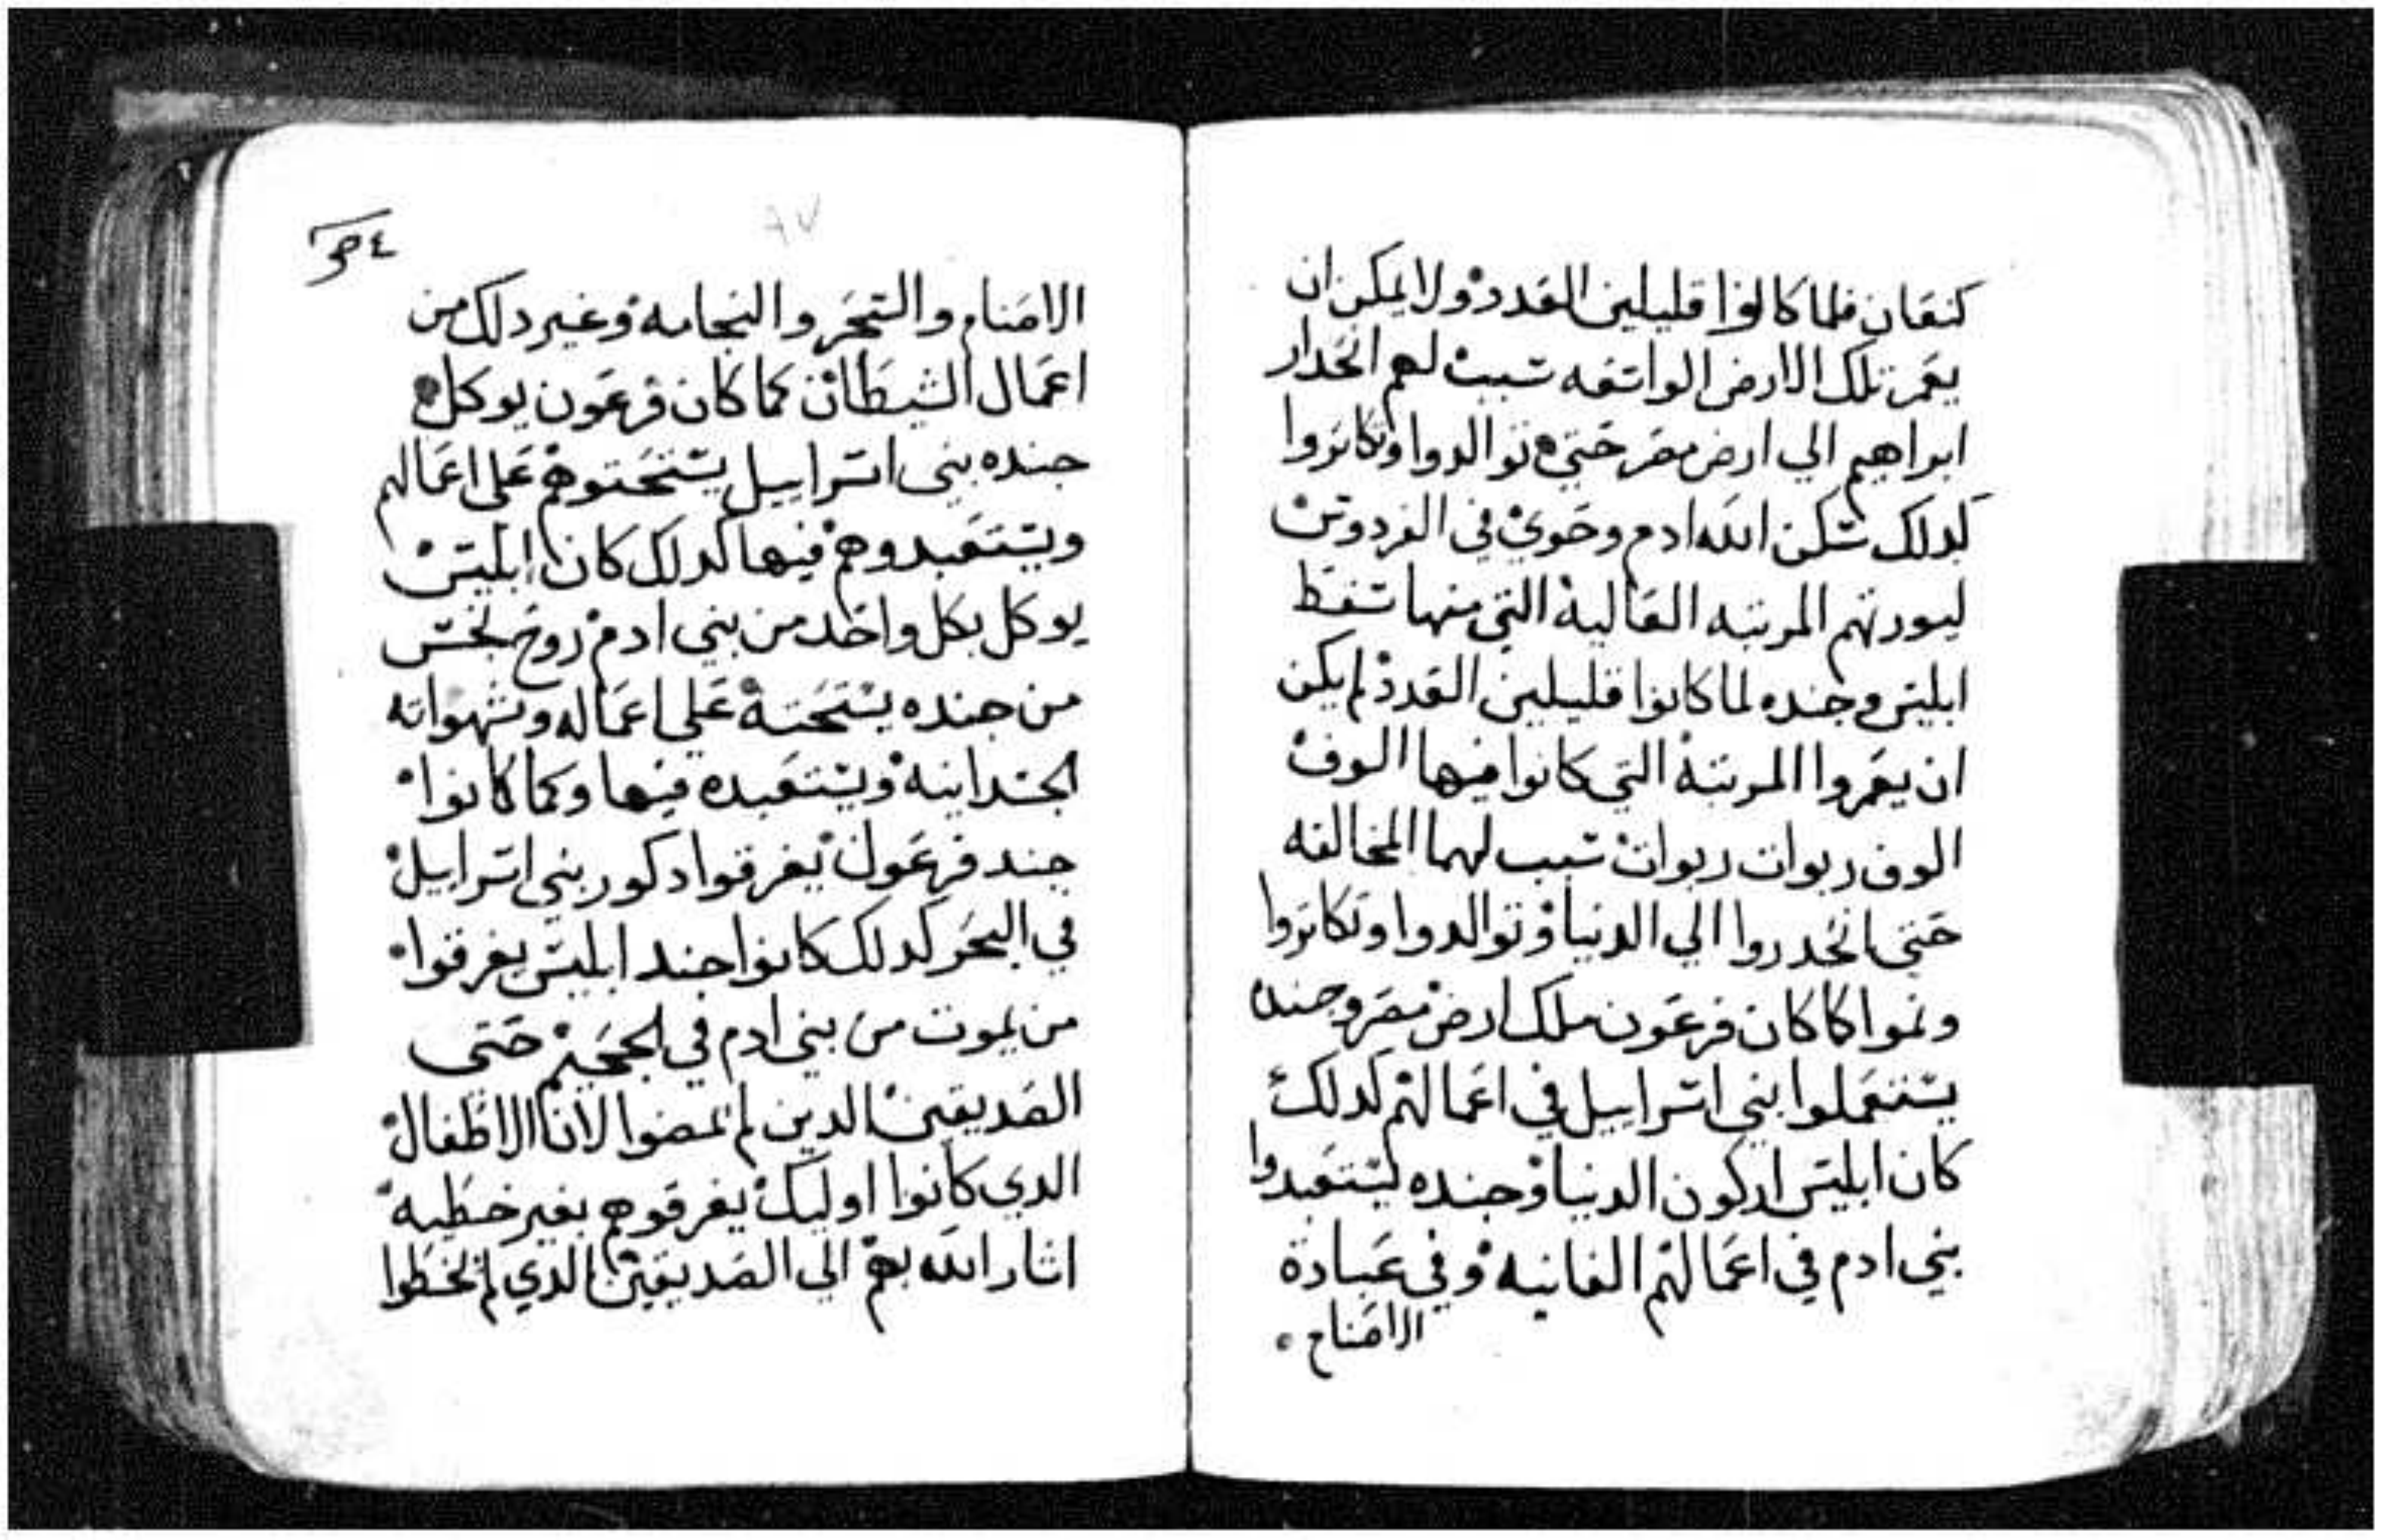 كنعان فلما كانوا قليلين العدد ولا يمكن ان
يعمر تلك الارض الواسعه سبب لهم انحدار
ابراهيم الي ارض مصر حتي توالدوا وتكاتروا
كدلك سكن الله ادم وحوي في الفردوس
ليورتهم المرتبه العالية التي منها سقط
ابليس وجنده لما كانوا قليلين العدد لم يكن
ان يعمروا المرتبة التي كانوا فيها الوف
الوف ربوات ربوات سبب لهما المخالفه
حتي انحدروا الي الدنيا وتوالدوا وتكاتروا
ونموا كما كان فرعون ملك ارض مصر وجنده
يستعملوا بني اسراييل في اعمالهم كدلك
كان ابليس اركون الدنيا وجنده ليستعبدوا
بني ادم في اعمالهم الفانيه وفي عبادة
الاصنام
٨٧
الاصنام والسحر والنجامه وغير دلك من
اعمال الشيطان كما كان فرعون يوكل
جنده ببني اسراييل يستحتوهم علي اعمالهم
ويستعبدوهم فيها كدلك كان ابليس
يوكل بكل واحد من بني ادم روح نجس
من جنده يستحته علي اعماله وشهواته
الجسدانيه ويستعبده فيها وكما كانوا
جند فرعون يغرقوا دكور بني اسراييل
في البحر كدلك كانوا جند ابليس يغرقوا
من يموت من بني ادم في الجحيم حتي
الصديقين الدين لم يمضوا لان الاطفال
الدي كانوا اوليك يغرقوهم بغير خطيه
اشار الله بهم الي الصديقين الدي لم يخطوا